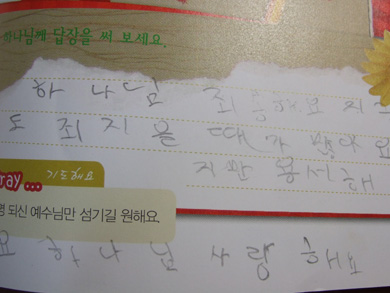 하나님께 답장을 써 보세요.
하 나 님 죄 송 해 요 지
도 죄 지 을 때 가 많 아
지 만 용 서 해
ray... 기도해요
명 되신 예수님만 섬기길 원해요.
요 하 나 님 사 랑 해 요